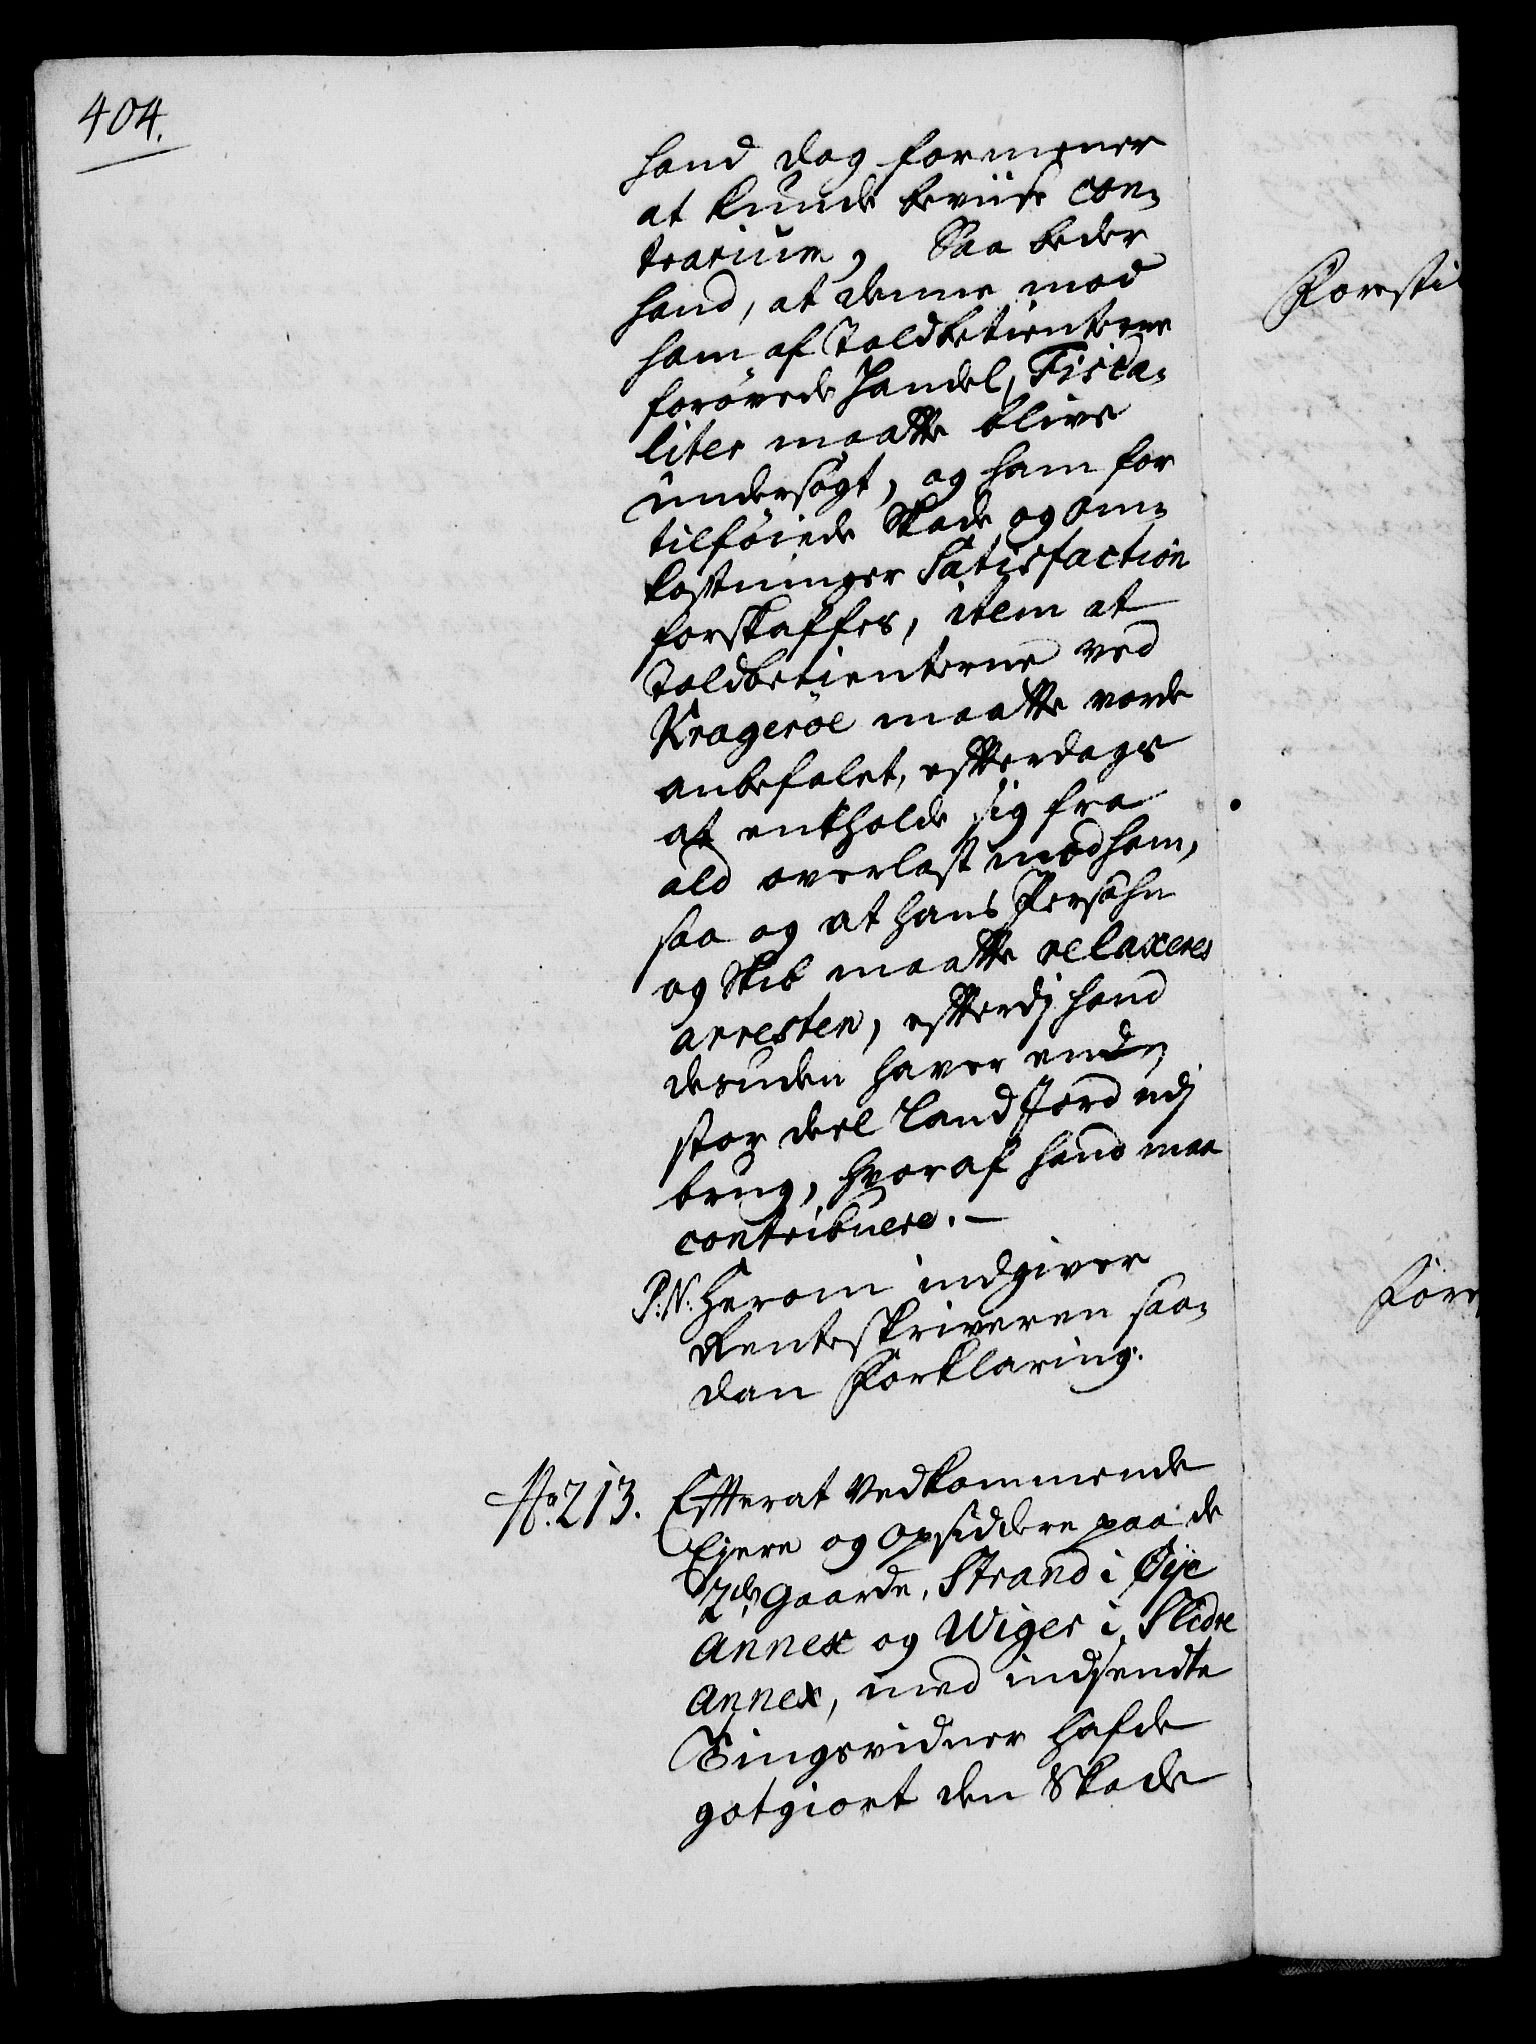 404.
hand dog formener
at kunde beviise con¬
trarium, Saa beder
hand, at denne mod
ham af Toldbetienterne
forøvede Handel, Fisca¬
liter maatte blive
undersøgt, og ham for
tilføiede Skade og Om¬
kostninger Satisfaction
forskaffes, item at
Toldbetienterne ved
Kragerøe maatte vorde
anbefalet, efterdags
at entholde sig fra
ald overlast mod ham,
saa og at hans Persohn
og Skib maatte relaxeres
arresten, efterdj hand
desuden haver en
stor deel Land Jord udj
brug, hvoraf hand maa
contribuere. -
P: N: Herom indgiver
Renteskriveren saa¬
dan Forklaring.
No. 213. Efterat Vedkommende
Ejere og Opsiddere paa de
2de Gaarde, Strand i Øye
Annex og Wiger i Slidre
Annex, med indsendte
Tingsvidner hafde
gotgiort den Skade
Foresti
Fore